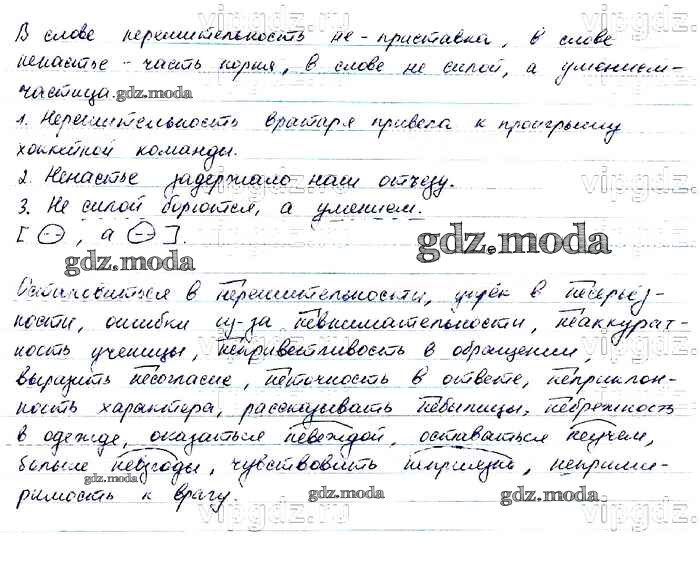 В слове нерешительность не-приставка, в слове
ненастье - часть корня, в слове не силой, а умением-
частица.
1. Нерешительность вратаря привела к проигрышу
хоккейной команды.
2. Ненастье задержало наш отъезд.
3. Не силой борются, а умением.
[ , а ].
Остановиться в нерешительности, упрёк в несерьёз-
ности, ошибки из-за невнимательности, неаккурат-
ность ученицы, неприветливость в обращении,
выразить несогласие, неточность в ответе, непреклон-
ность характера, рассказывать небылицы, небрежность
в одежде, оказаться невеждой, оставаться неучем,
больше невзгоды, чувствовать неприязнь, неприми-
римость к врагу.
gdz.moda
gdz.moda
gdz.moda
gdz.moda
gdz.moda
gdz.moda
vipgdz.ru
vipgdz.ru
vipgdz.ru
vipgdz.ru